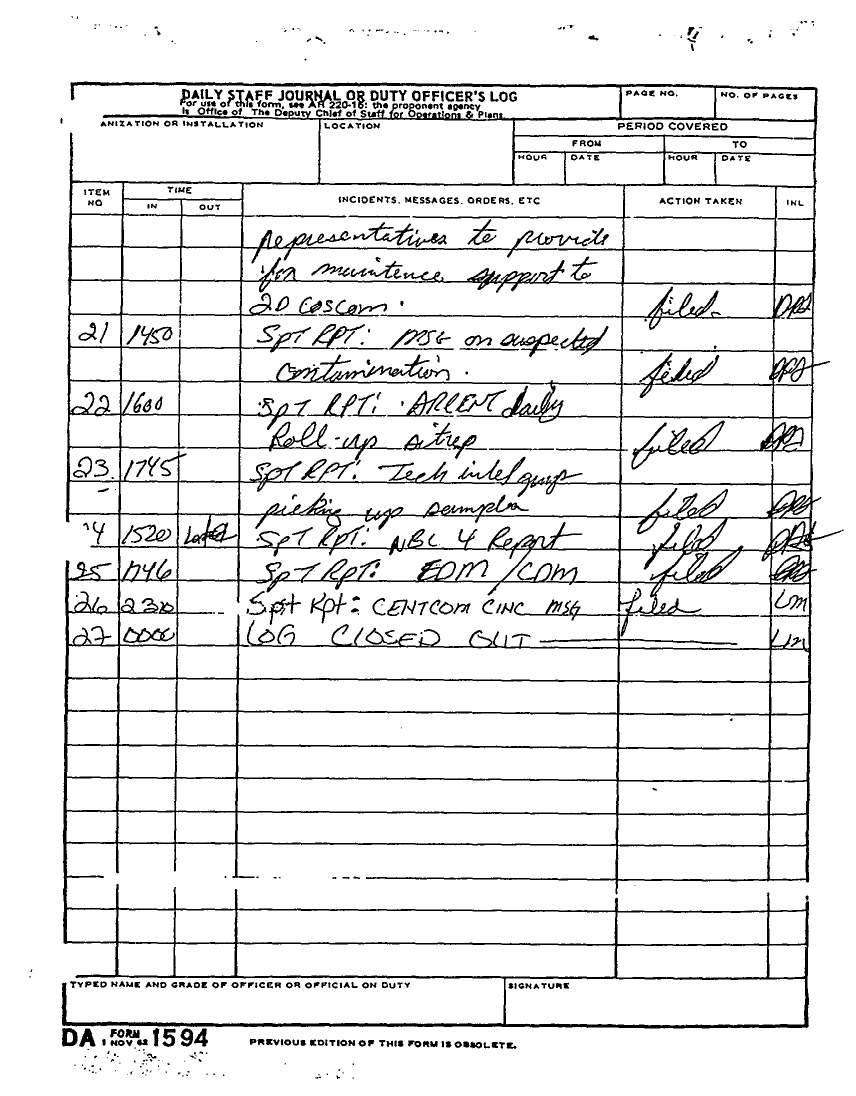 DAILY STAFF JOURNAL OR DUTY OFFICER'S LOG
For use of this form, see AR 220-15: the proponent agency
is Office of The Deputy Chief of Staff for Operations & Plans
PAGE NO.
NO. OF PAGES
ANIZATION OR INSTALLATION
LOCATION
PERIOD COVERED
FROM TO
HOUR DATE HOUR DATE
ITEM NO
TIME
IN OUT
INCIDENTS, MESSAGES, ORDERS, ETC
ACTION TAKEN
INL
Representatives to provide
for maintence support to
2D COSCOM. filed
21 1450 SpT RPT: MSG on suspected
contamination. filed
22 1600 SpT RPT: ARCENT daily
Roll-up sitrep filed
23 1745 SpT RPT: Tech intel grup
picking up samples filed
4 1520 Late SpT Rpt: NBC 4 Report filed
25 1746 SpT Rpt: EDM/CDM filed
26 Spt Rpt: CENTCOM CINC MSG filed Lm
27 0000 LOG CLOSED OUT Lm
TYPED NAME AND GRADE OF OFFICER OR OFFICIAL ON DUTY
SIGNATURE
DA FORM 1 NOV 62 1594
PREVIOUS EDITION OF THIS FORM IS OBSOLETE.